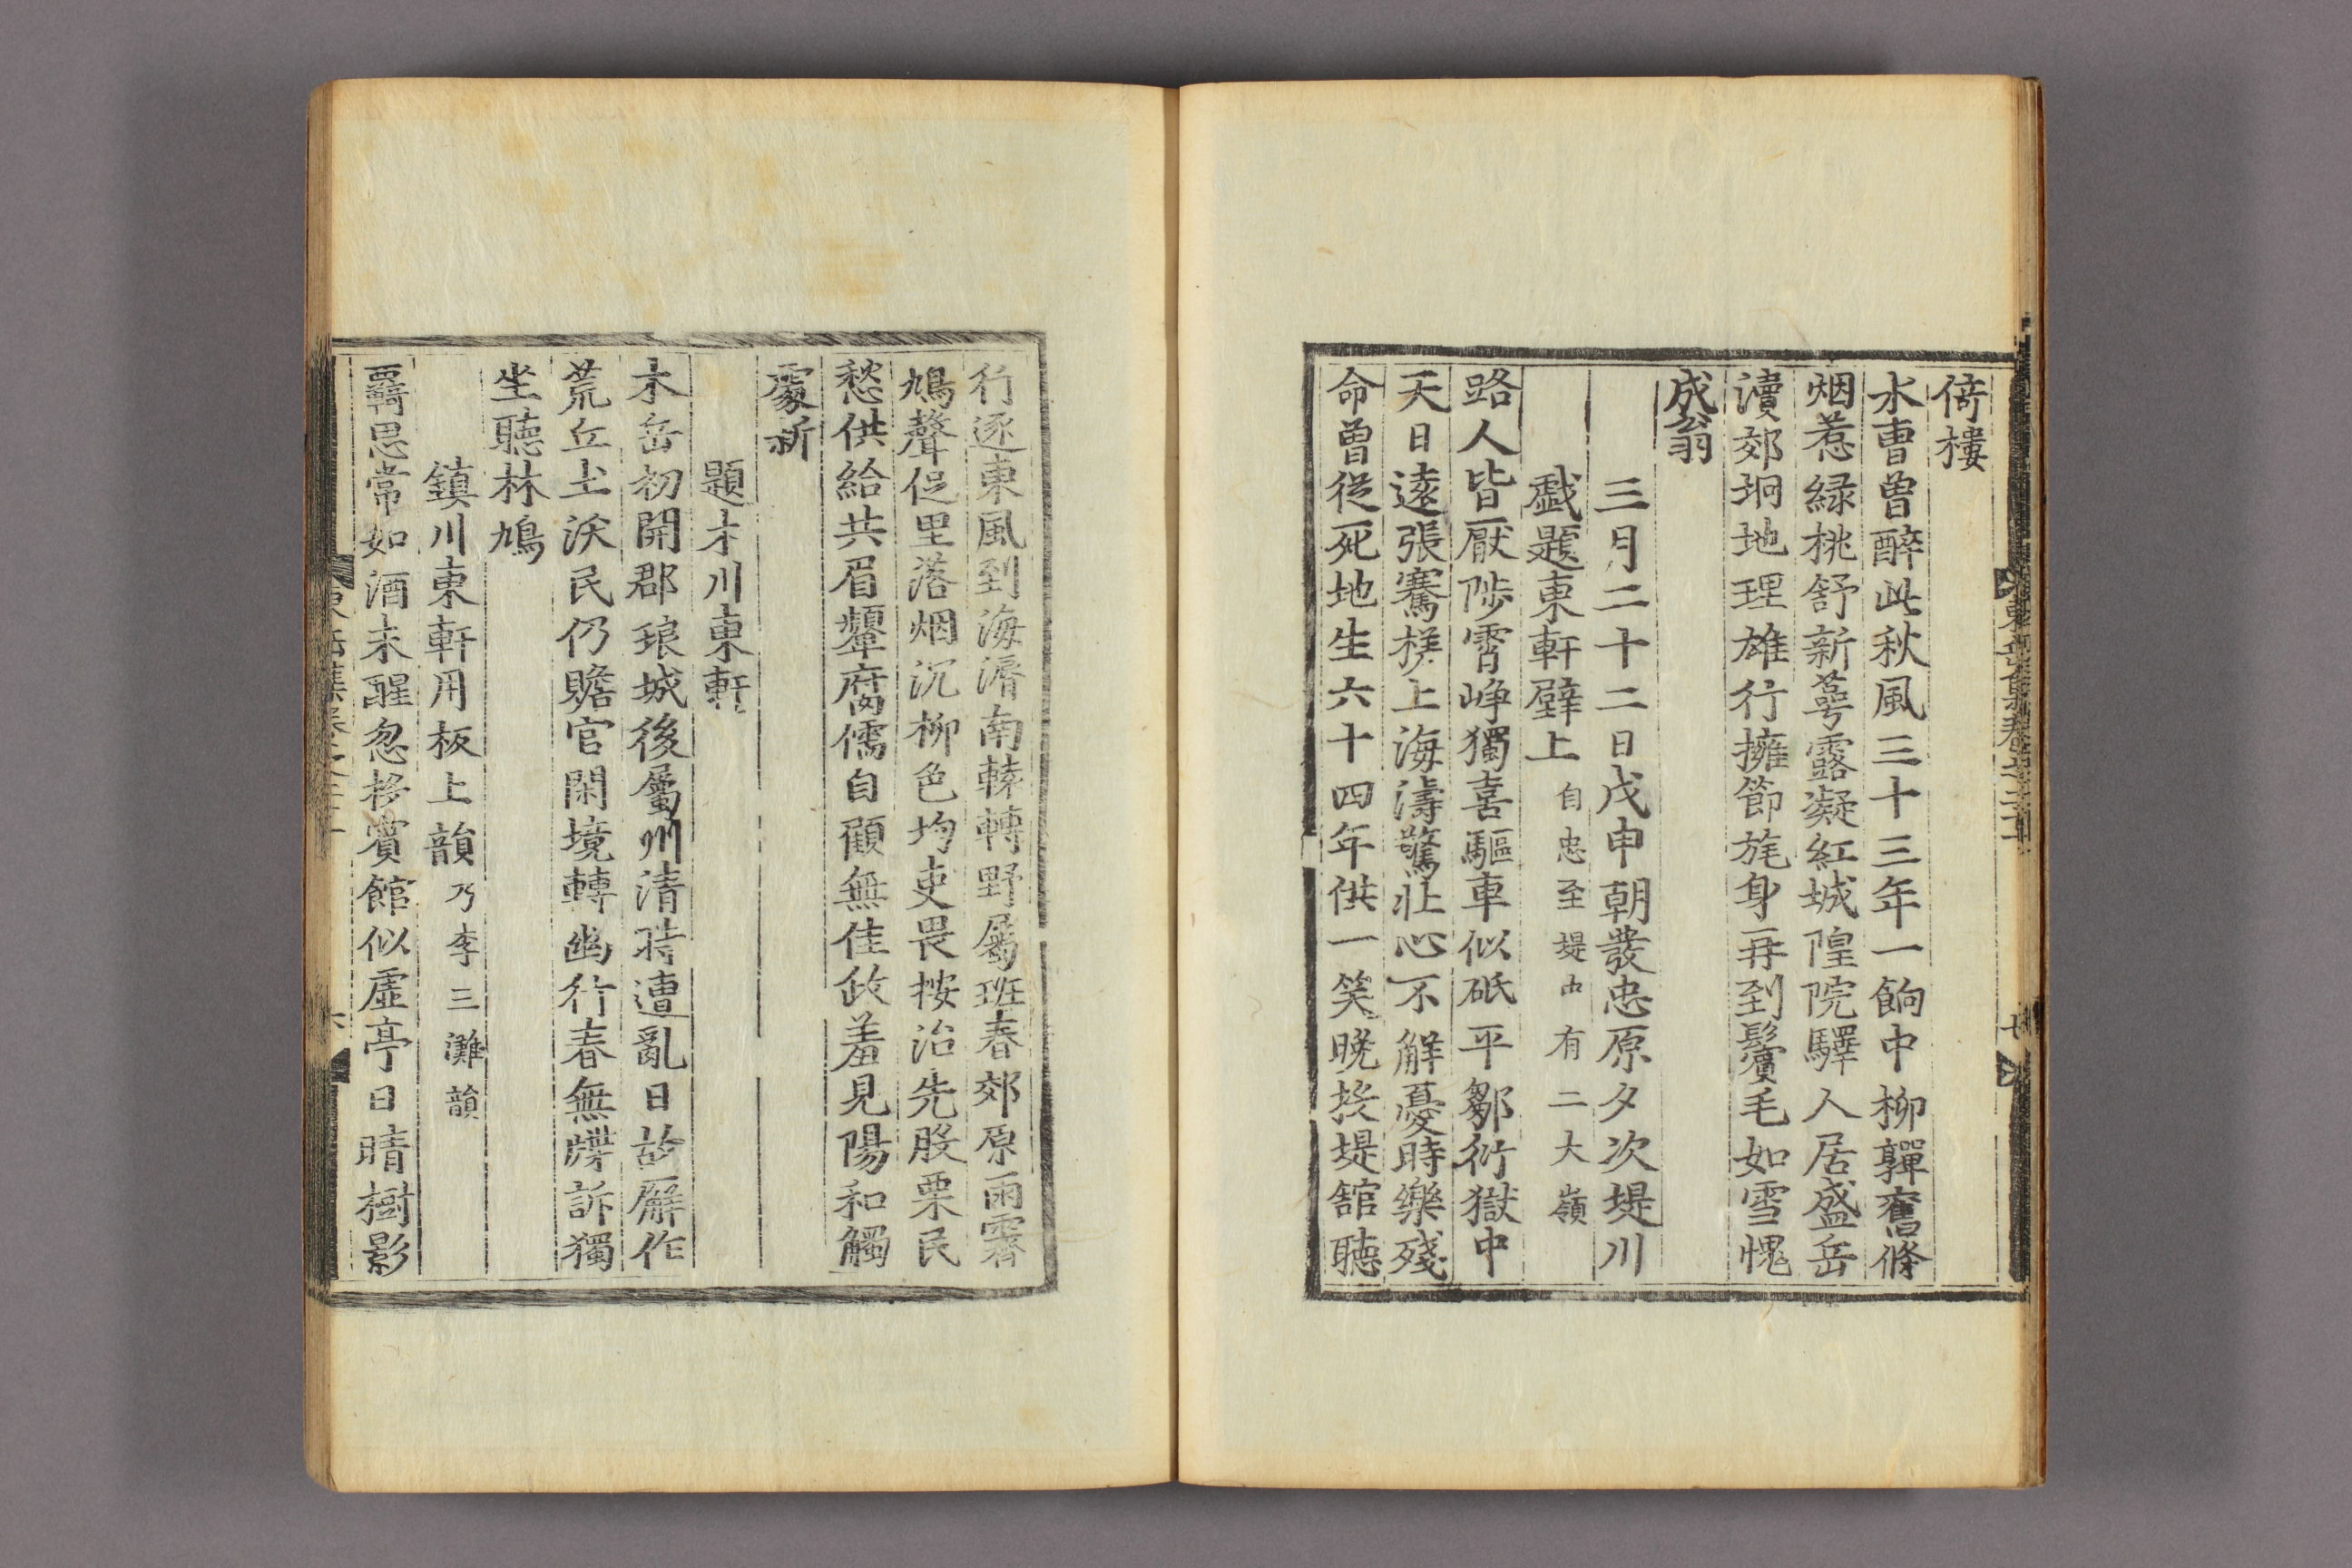 倚樓
水曺曾醉此秋風三十三年一餉中柳嚲舊條
烟惹緑桃舒新萼露凝紅城隍院驛人居盛岳
瀆郊坰地理雄行擁節旄身再到鬢毛如雪愧
成翁
三月二十二日戊申朝發忠原夕次堤川
戱題東軒壁上自忠至堤由有二大嶺
路人皆厭陟霄崢獨喜驅車似砥平鄒衍獄中
天日遠張騫槎上海濤驚壯心不解憂時樂殘
命曾從死地生六十四年供一笑晚投堤舘聽
行逐東風到海漘南轅轉野屬班春郊原雨霽
鳩聲促里落烟沉柳色均吏畏按治先股栗民
愁供給共眉顰腐儒自顧無佳政羞見陽和觸
處新
題木川東軒
木岳初開郡琅城後屬州清時遭亂日故廨作
荒丘土沃民仍贍官閑境轉幽行春無牒訴獨
坐聽林鳩
鎮川東軒用板上韻乃李三灘韻
覊思常如酒未醒忽移賓館似虛亭日晴樹影